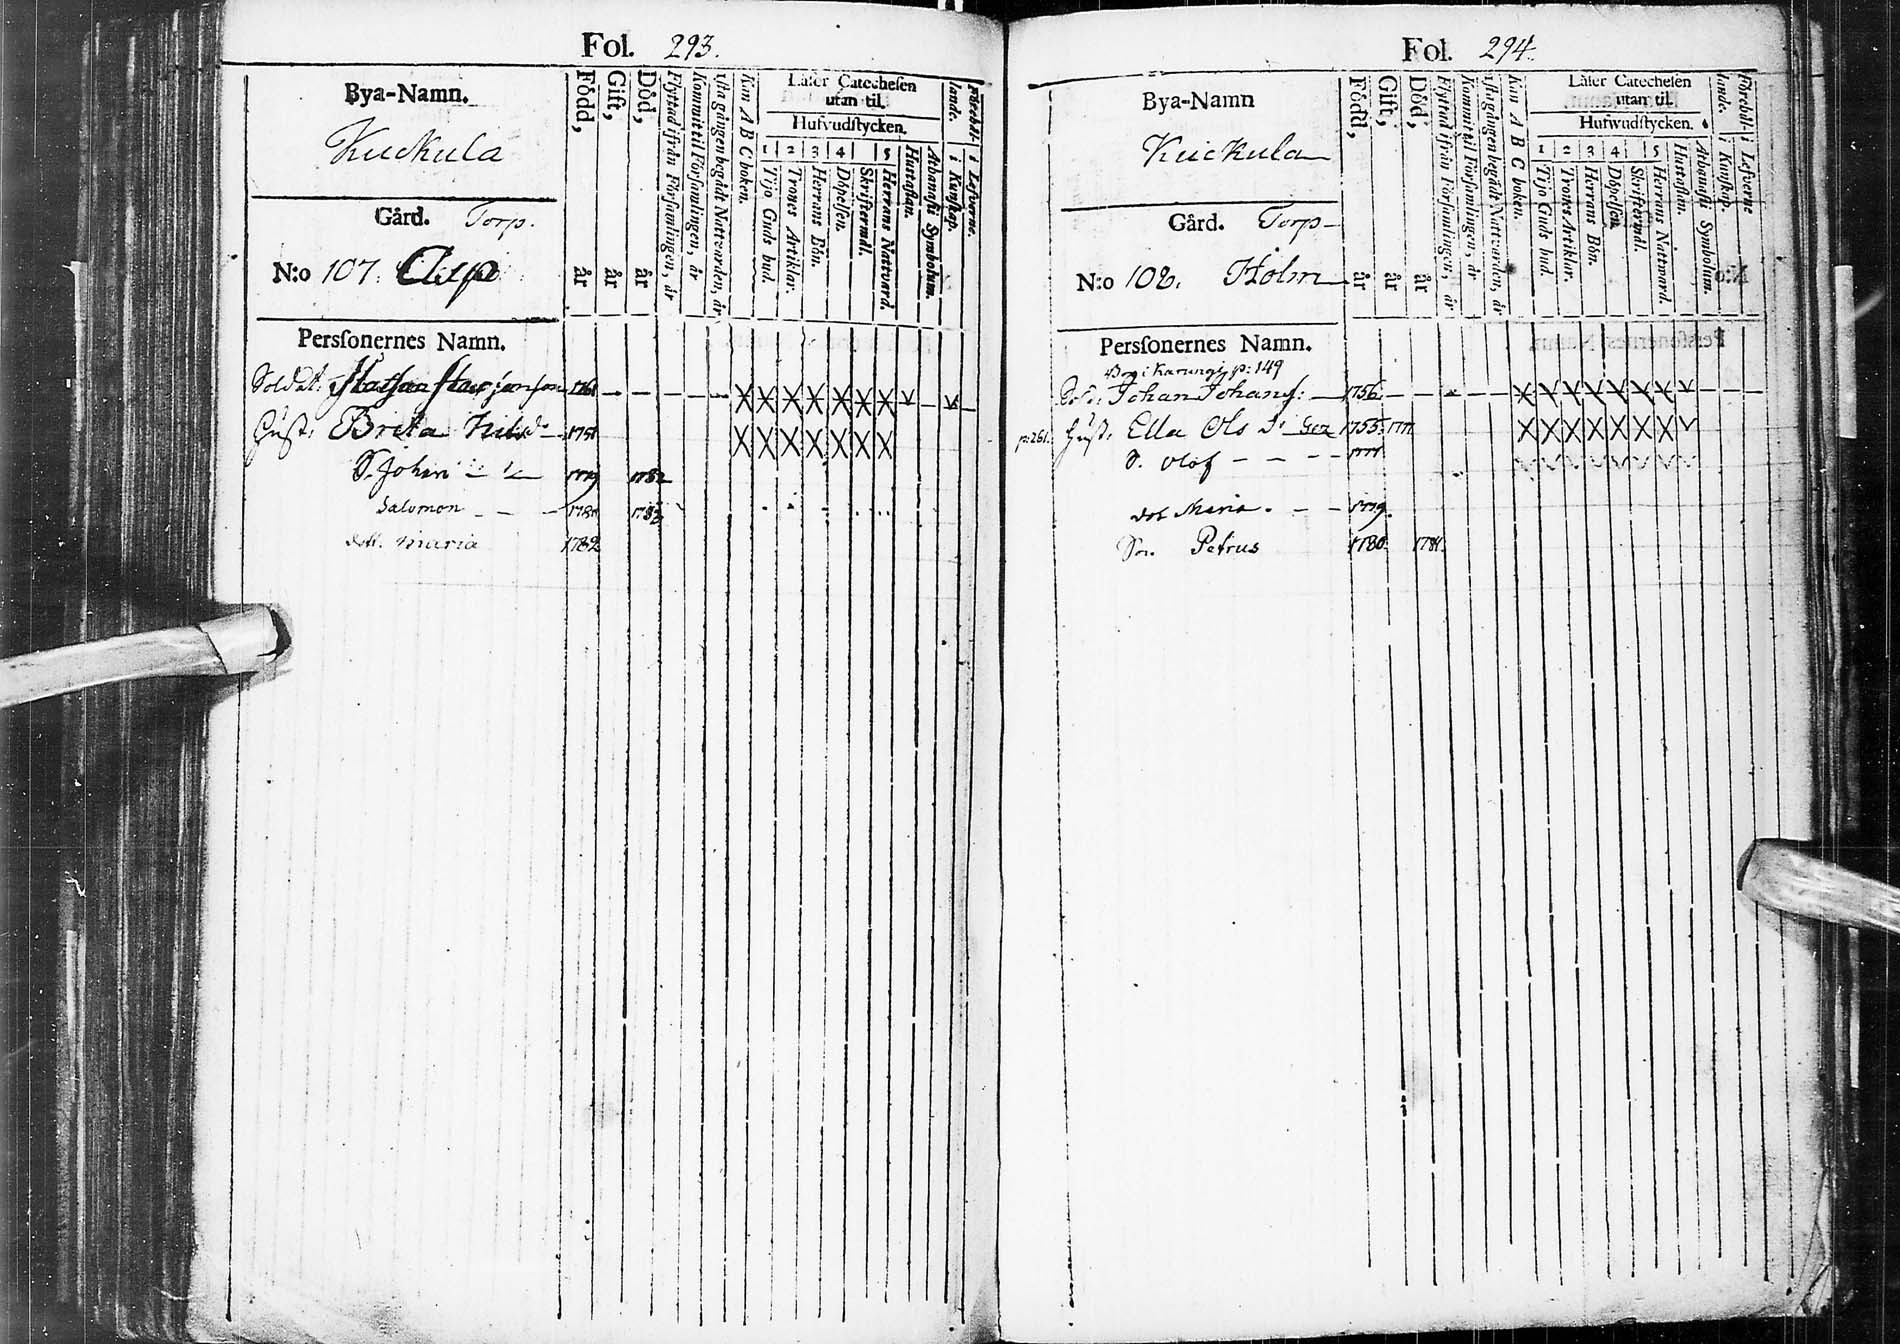 Fol. 293.
Bya-Namn.
Kuckula
Gård. Torp.
N:o 107.
Född, år
Gift, år
Död, år
Flyttad ifrån Församlingen, år
Kommit til Församlingen, år
1sta gången begådt Nattvarden, år
Kan A B C boken.
Läser Catechesen
utan til.
Hufvudstycken.
1 2 3 4 5
Tijo Guds bud.
Trones Artiklar.
Herrans Bön.
Döpelsen.
Skriftermål.
Herrans Nattvard.
Hustaflan.
Athanasii Symbolum.
Förehållande.
i Kunskap.
i Lefverne.
Personernes Namn.
Soldat.
Hust. Brita
S. Johan 1779 1782
Salomon - - - 1781 1783
dott. Maria 1782
Fol. 294.
Bya-Namn
Kuckula
Gård. Torp
N:o 108. Holm
Född, år
Gift, år
Död, år
Flyttad ifrån Församlingen, år
Kommit til Församlingen, år
1sta gången begådt Nattvarden, år
Kan A B C boken.
Läser Catechesen
utan til.
Hufwudstycken.
1 2 3 4 5
Tijo Guds bud.
Trones Artiklar.
Herrans Bön.
Döpelsen.
Skriftermål.
Herrans Nattward.
Hustaflan.
Athanasii Symbolum.
Förehållande.
i Kunskap.
i Lefverne
Personernes Namn.
Bor i Karungi p: 149
Sold: Johan Johans: 1756.
p: 261. Hust. Ella Ols d: 1755.
S. Olof - - - -
dot Maria. - - 1779.
Son Petrus 1780. 1781.